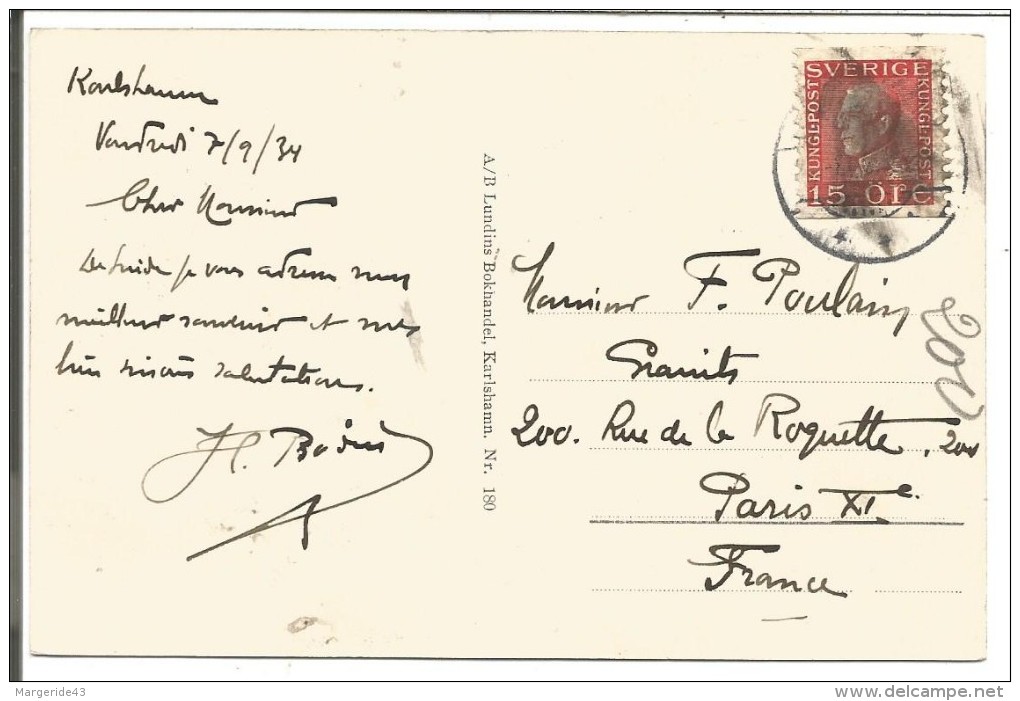 Karlshamn
Vendredi 7/9/34
Cher Monsieur
De Suède je vous adresse mes
meilleurs souvenirs et mes
bien sincères salutations.
A/B Lundins Bokhandel, Karlshamn. Nr. 180
SVERIGE
KUNGL-POST
KUNGL-POST
15 ÖRE
Monsieur F. Poulain
Granits
200. Rue de la Roquette. 200
Paris XIe
France
200
Margeride43
www.delcampe.net